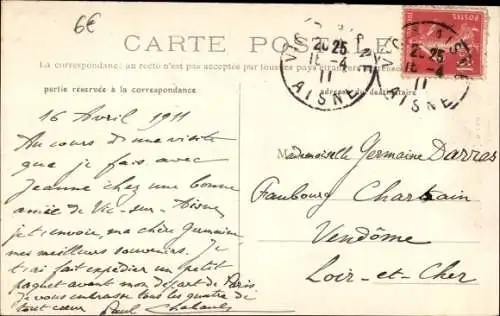 6€
CARTE POSTALE
La correspondance au recto n'est pas acceptée par tous les pays étrangers
partie réservée à la correspondance
adresse du destinataire
POSTES
VIC-S-AISNE
20 25
16 -4
11
AISNE
VIC-S-AISNE
2 25
16 -4
11
AISNE
16 Avril 1911
Au cours d'une visite
que je fais avec
Jeanne chez une bonne
amie de Vic-sur-Aisne
je t'envoie, ma chère Germaine
mes meilleurs souvenirs. Je
t'ai fait expédier un petit
paquet avant mon départ de Paris
Je vous embrasse tous les quatre de
tout cœur Paul
Mademoiselle Germaine Darras
Faubourg Chartrain
Vendôme
Loir-et-Cher